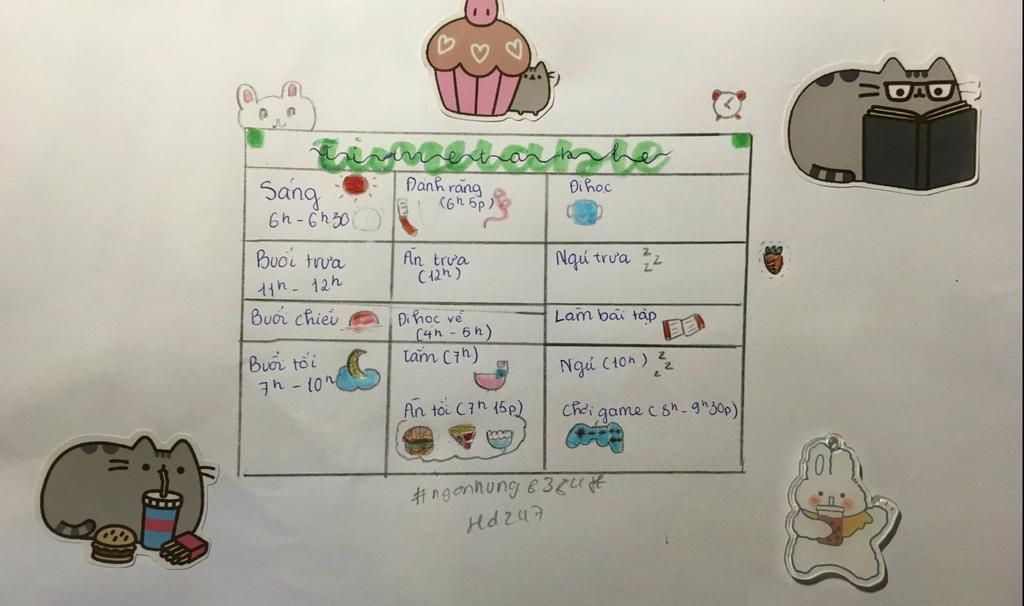 Timetable
Sáng
6h - 6h30
Đánh răng
(6h 5p)
Đi học
Buổi trưa
11h - 12h
Ăn trưa
(12h)
Ngủ trưa
z z z
Buổi chiều
Đi học về
(4h - 5h)
Làm bài tập
Buổi tối
7h - 10h
Tắm (7h)
Ăn tối (7h 15p)
Ngủ (10h)
z z z
Chơi game (8h - 9h30p)
Hd247